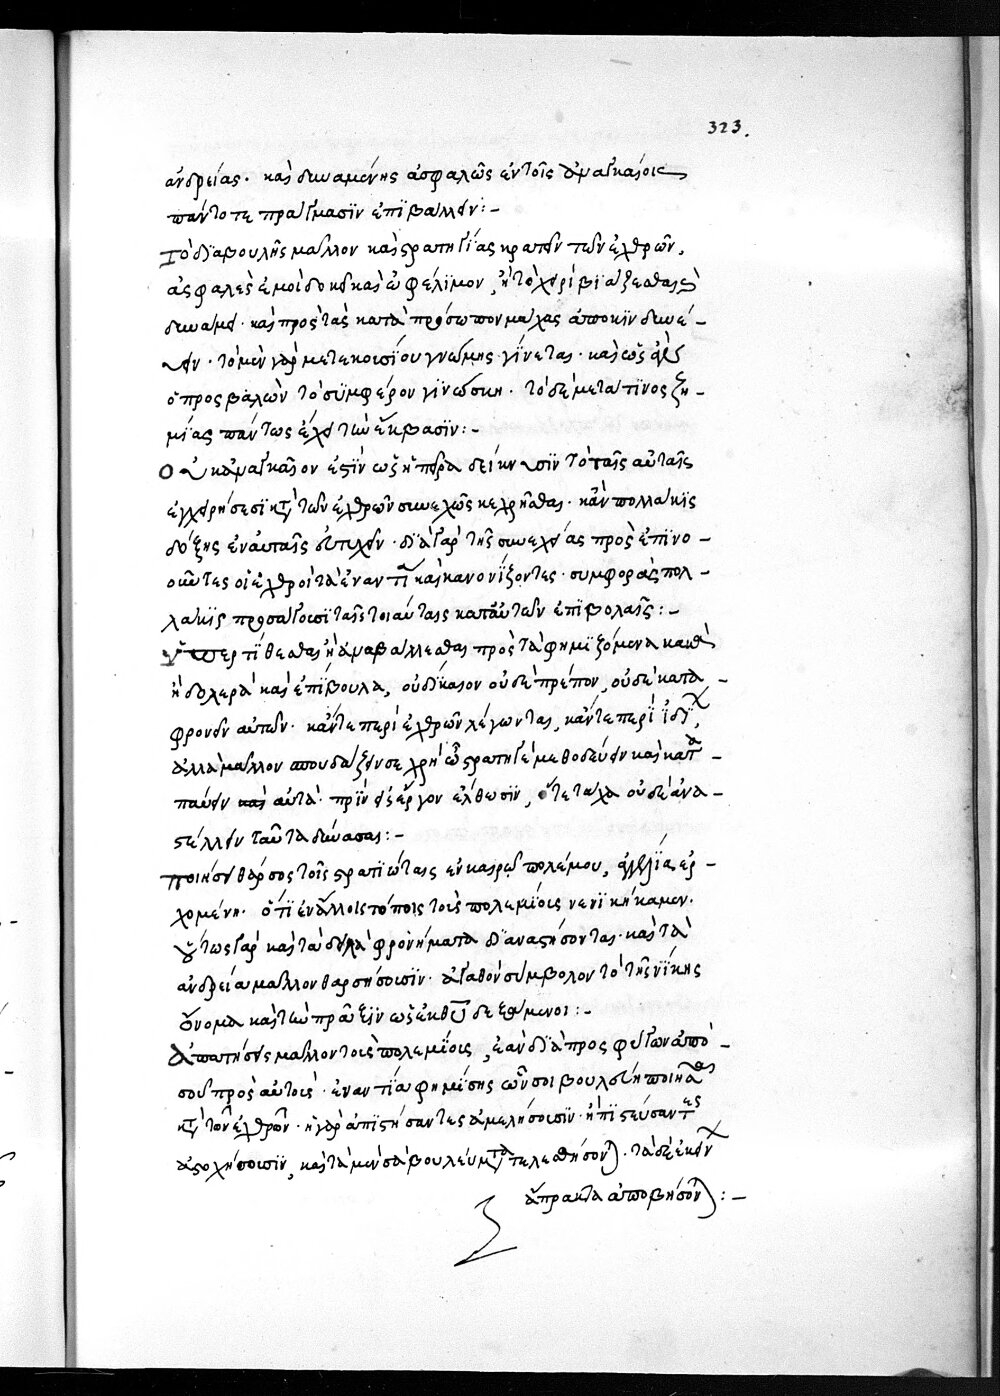 323.
ἀνδρείας. καὶ δυναμένης ἀσφαλῶς ἐν τοῖς ἀναγκαίοις
πάντοτε πράγμασϊν ἐπϊβάλλειν:-
Τὸ διὰ βουλῆς μᾶλλον καὶ στρατηγίας κρατεῖν τῶν ἐχθρῶν,
ἀσφαλὲς ἐμοὶ δοκεῖ καὶ ὠφέλϊμον, ἢ τὸ χειρὶ βϊάζεσθαι
δυνάμει. καὶ πρὸς τὰς κατὰ πρόσωπον μάχας ἀποκϊνδυνεύ-
ειν. τὸ μὲν γὰρ μετ
ὁ προσβαλὼν τὸ σϋμφέρον γϊνώσκη. τὸ δὲ μετά τϊνος ζη-
μϊας πάντως ἔχει τὴν ἔκβασϊν:-
Οὐκ ἀναγκαῖον ἐστὶν ὡς ἡ πεῖρα δείκνυσϊν τὸ ταῖς αὐταῖς
ἐγχειρήσεσϊ κατὰ τῶν ἐχθρῶν συνεχῶς κεχρῆσθαι. κἂν πολλάκϊς
δόξης ἐν αὐταῖς εὐτυχεῖν. δϊὰ γὰρ τῆς συνεχείας πρὸς ἐπϊνο-
οῦντες οἱ ἐχθροὶ τὰ ἐναντία καὶ κανονίζοντες. συμφορὰς πολ-
λάκϊς προσάγουσϊ ταῖς τοιαύταις κατ' αὐτῶν ἐπϊβολαῖς:-
Ὑπερτίθεσθαι ἢ ἀναβάλλεσθαι πρὸς τὰ φημϊζόμενα κακὰ
ἢ δολερὰ καὶ ἐπίβουλα, οὐ δίκαιον οὐδὲ πρέπον, οὐδὲ κατα-
φρονεῖν αὐτῶν. κἄν τε περὶ ἐχθρῶν λέγωνται, κἄν τε περὶ ἰδί,
ἀλλὰ μᾶλλον σπουδάζειν σε χρὴ ὦ στρατηγὲ μεθοδεύειν καὶ κατα-
παύειν αὐτὰ. πρϊν εἰς ἔργον ἔλθωσϊν, ὅτε τάχα οὐδὲ ἀνα-
στέλλειν ταῦτα δύνασαι:-
Ποιήσει θάρσος τοῖς στρατϊώταις ἐν καιρῶ πολέμου, ἀγγελϊα ἐρ-
χομένη. ὅτϊ ἐν ἄλλοις τόποις τοὺς πολεμϊους νενϊκήκαμεν.
οὕτως γὰρ καὶ τὰ δειλὰ φρονήματα δϊαναστήσονται. καὶ τὰ
ἀνδρεῖα μᾶλλον θαρσήσουσϊν. ἀγαθὸν σύμβολον τὸ τῆς νίκης
ὄνομα καὶ τὴν πρᾶξϊν ὡς ἐκ θεοῦ δεξάμενοι:-
Ἀπατήσεις μᾶλλον τοὺς πολεμϊους, ἐὰν δϊὰ προσφευγων ἀπό-
σου πρὸς αὐτοὺς. ἐναντία φημϊσης ὧν σοι βουλητὴ ποιῆσαι
κατὰ τῶν ἐχθρῶν. ἢ γὰρ ἀπϊστήσαντες ἀμελήσουσϊν. ἢ πϊστεύσαντες
ἀστοχήσουσϊν, καὶ τὰ μὲν σὰ βουλεύματα τελεσθήσονται. τὰ δὲ ἐκείνων
ἄπρακτα ἀποβήσονται:-